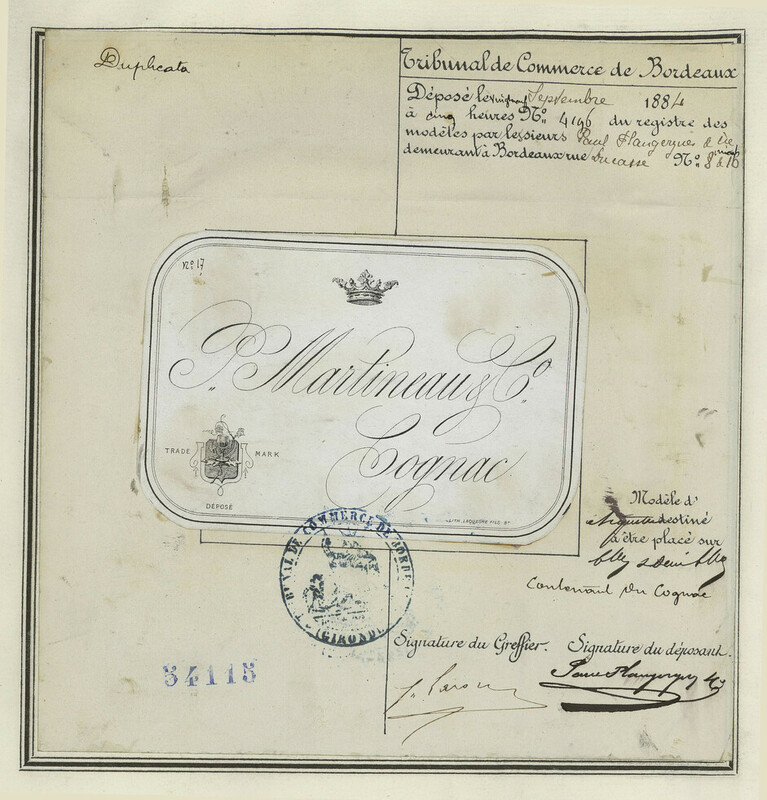 Duplicata
Tribunal de Commerce de Bordeaux
Déposé le Septembre 1884
à cinq heures Nº 4196 du registre des
modèles par les sieurs Paul Flangergues & Cie
demeurant à Bordeaux rue Ducasse Nº 8 à 16
Nº 17
P. Martineau & Cº.
Cognac
TRADE MARK
DÉPOSÉ
TRIBUNAL DE COMMERCE DE BORDEAUX
(GIRONDE)
Modèle d'
étiquette destiné
à être placé sur
Blles & Demi Blles
Contenant du Cognac
Signature du Greffier. Signature du déposant.
Paul Flangergues & Cie
54115